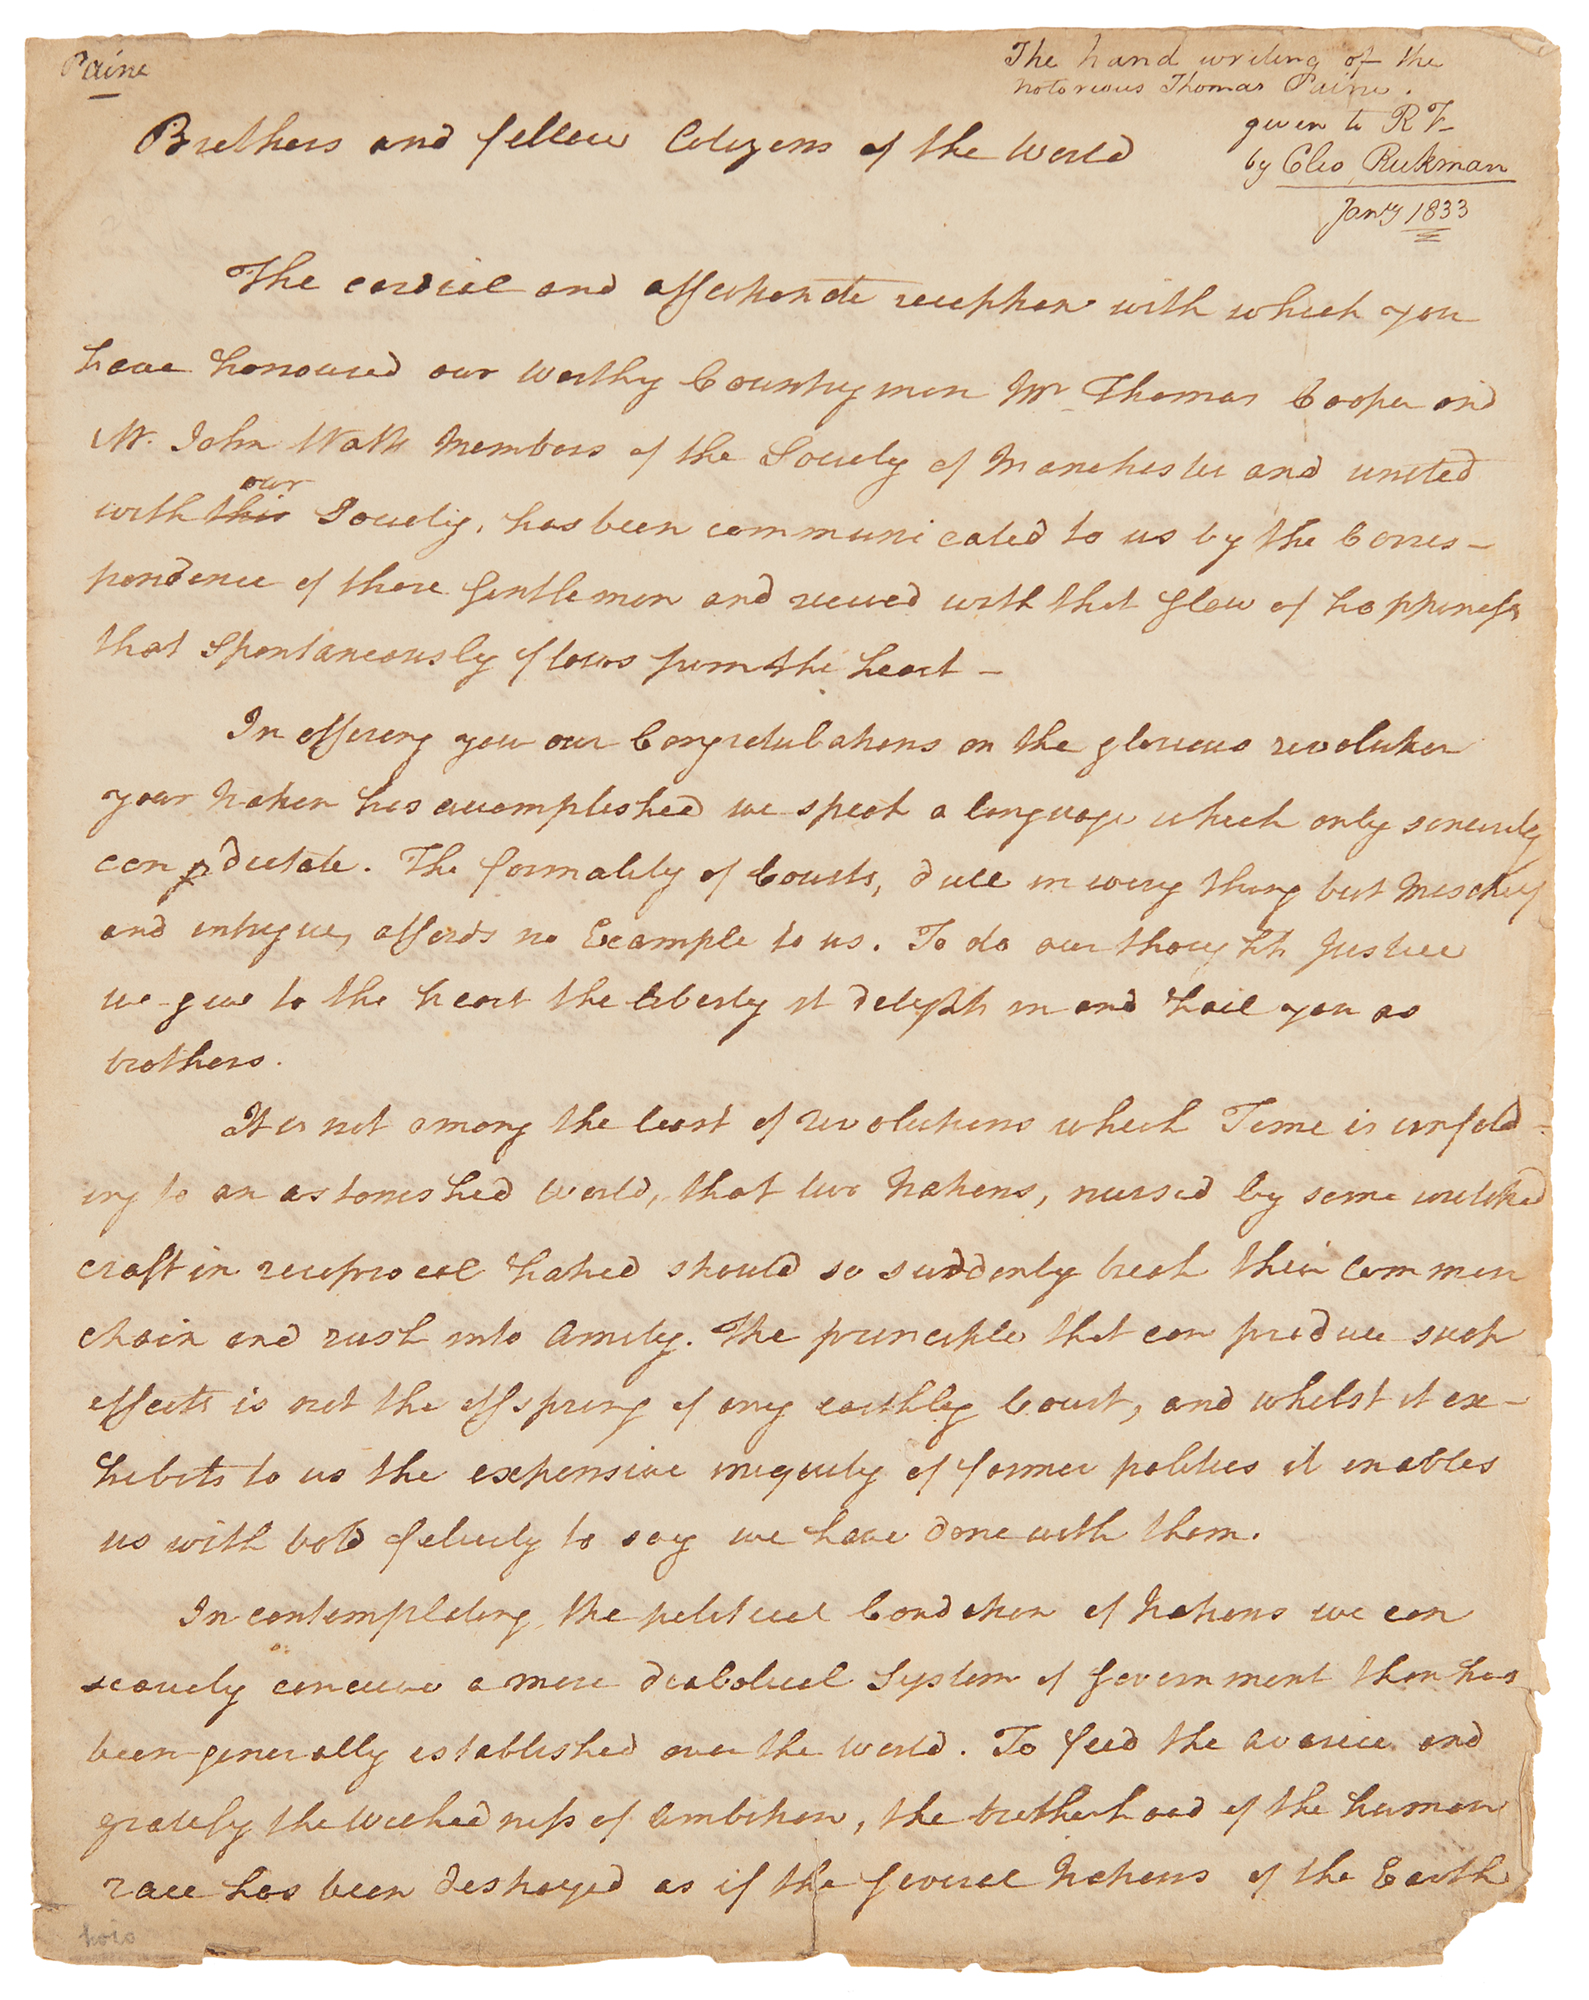 Paine
The hand writing of the
notorious Thomas Paine.
given to R F
by Clio Rickman
Jany 1833
Brethers and fellow Citizens of the World
The cordial and affectionate reception with which you
have honoured our worthy Countrymen Mr Thomas Cooper and
Mr. John Watt Members of the Society of Manchester and united
with this our Society, has been communicated to us by the Corres-
pondence of those Gentlemen and received with that glow of happiness
that spontaneously flows from the heart -
In offering you our Congratulations on the glorious revolution
your Nation has accomplished we speak a language which only sincerity
can dictate. The formality of Courts, dull in every thing but Mischief
and intrigue, affords no Example to us. To do our thoughts Justice
we give to the heart the liberty it delights in and hail you as
brothers.
It is not among the least of revolutions which Time is unfold-
ing to an astonished World, that two Nations, nursed by some wretched
craft in reciprocal hatred should so suddenly break their common
chain and rush into Amity. The principle that can produce such
effects is not the offspring of any earthly Court, and whilst it ex-
hibits to us the expensive iniquity of former politics it enables
us with bold felicity to say we have done with them.
In contemplating the political Condition of Nations we can
scarcely conceive a more diabolical System of Government than has
been generally established over the World. To feed the avarice and
gratify the Wickedness of Ambition, the brotherhood of the human
race has been destroyed as if the several Nations of the Earth